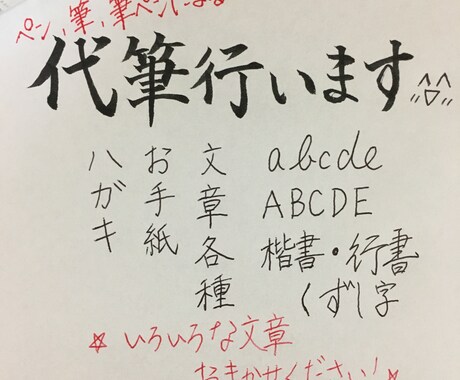 ペン、筆、筆ペンによる
代筆行います^^
abcde
ABCDE
楷書・行書
くずし字
文章各種
お手紙
ハガキ
☆いろいろな文章
おまかせください!☆